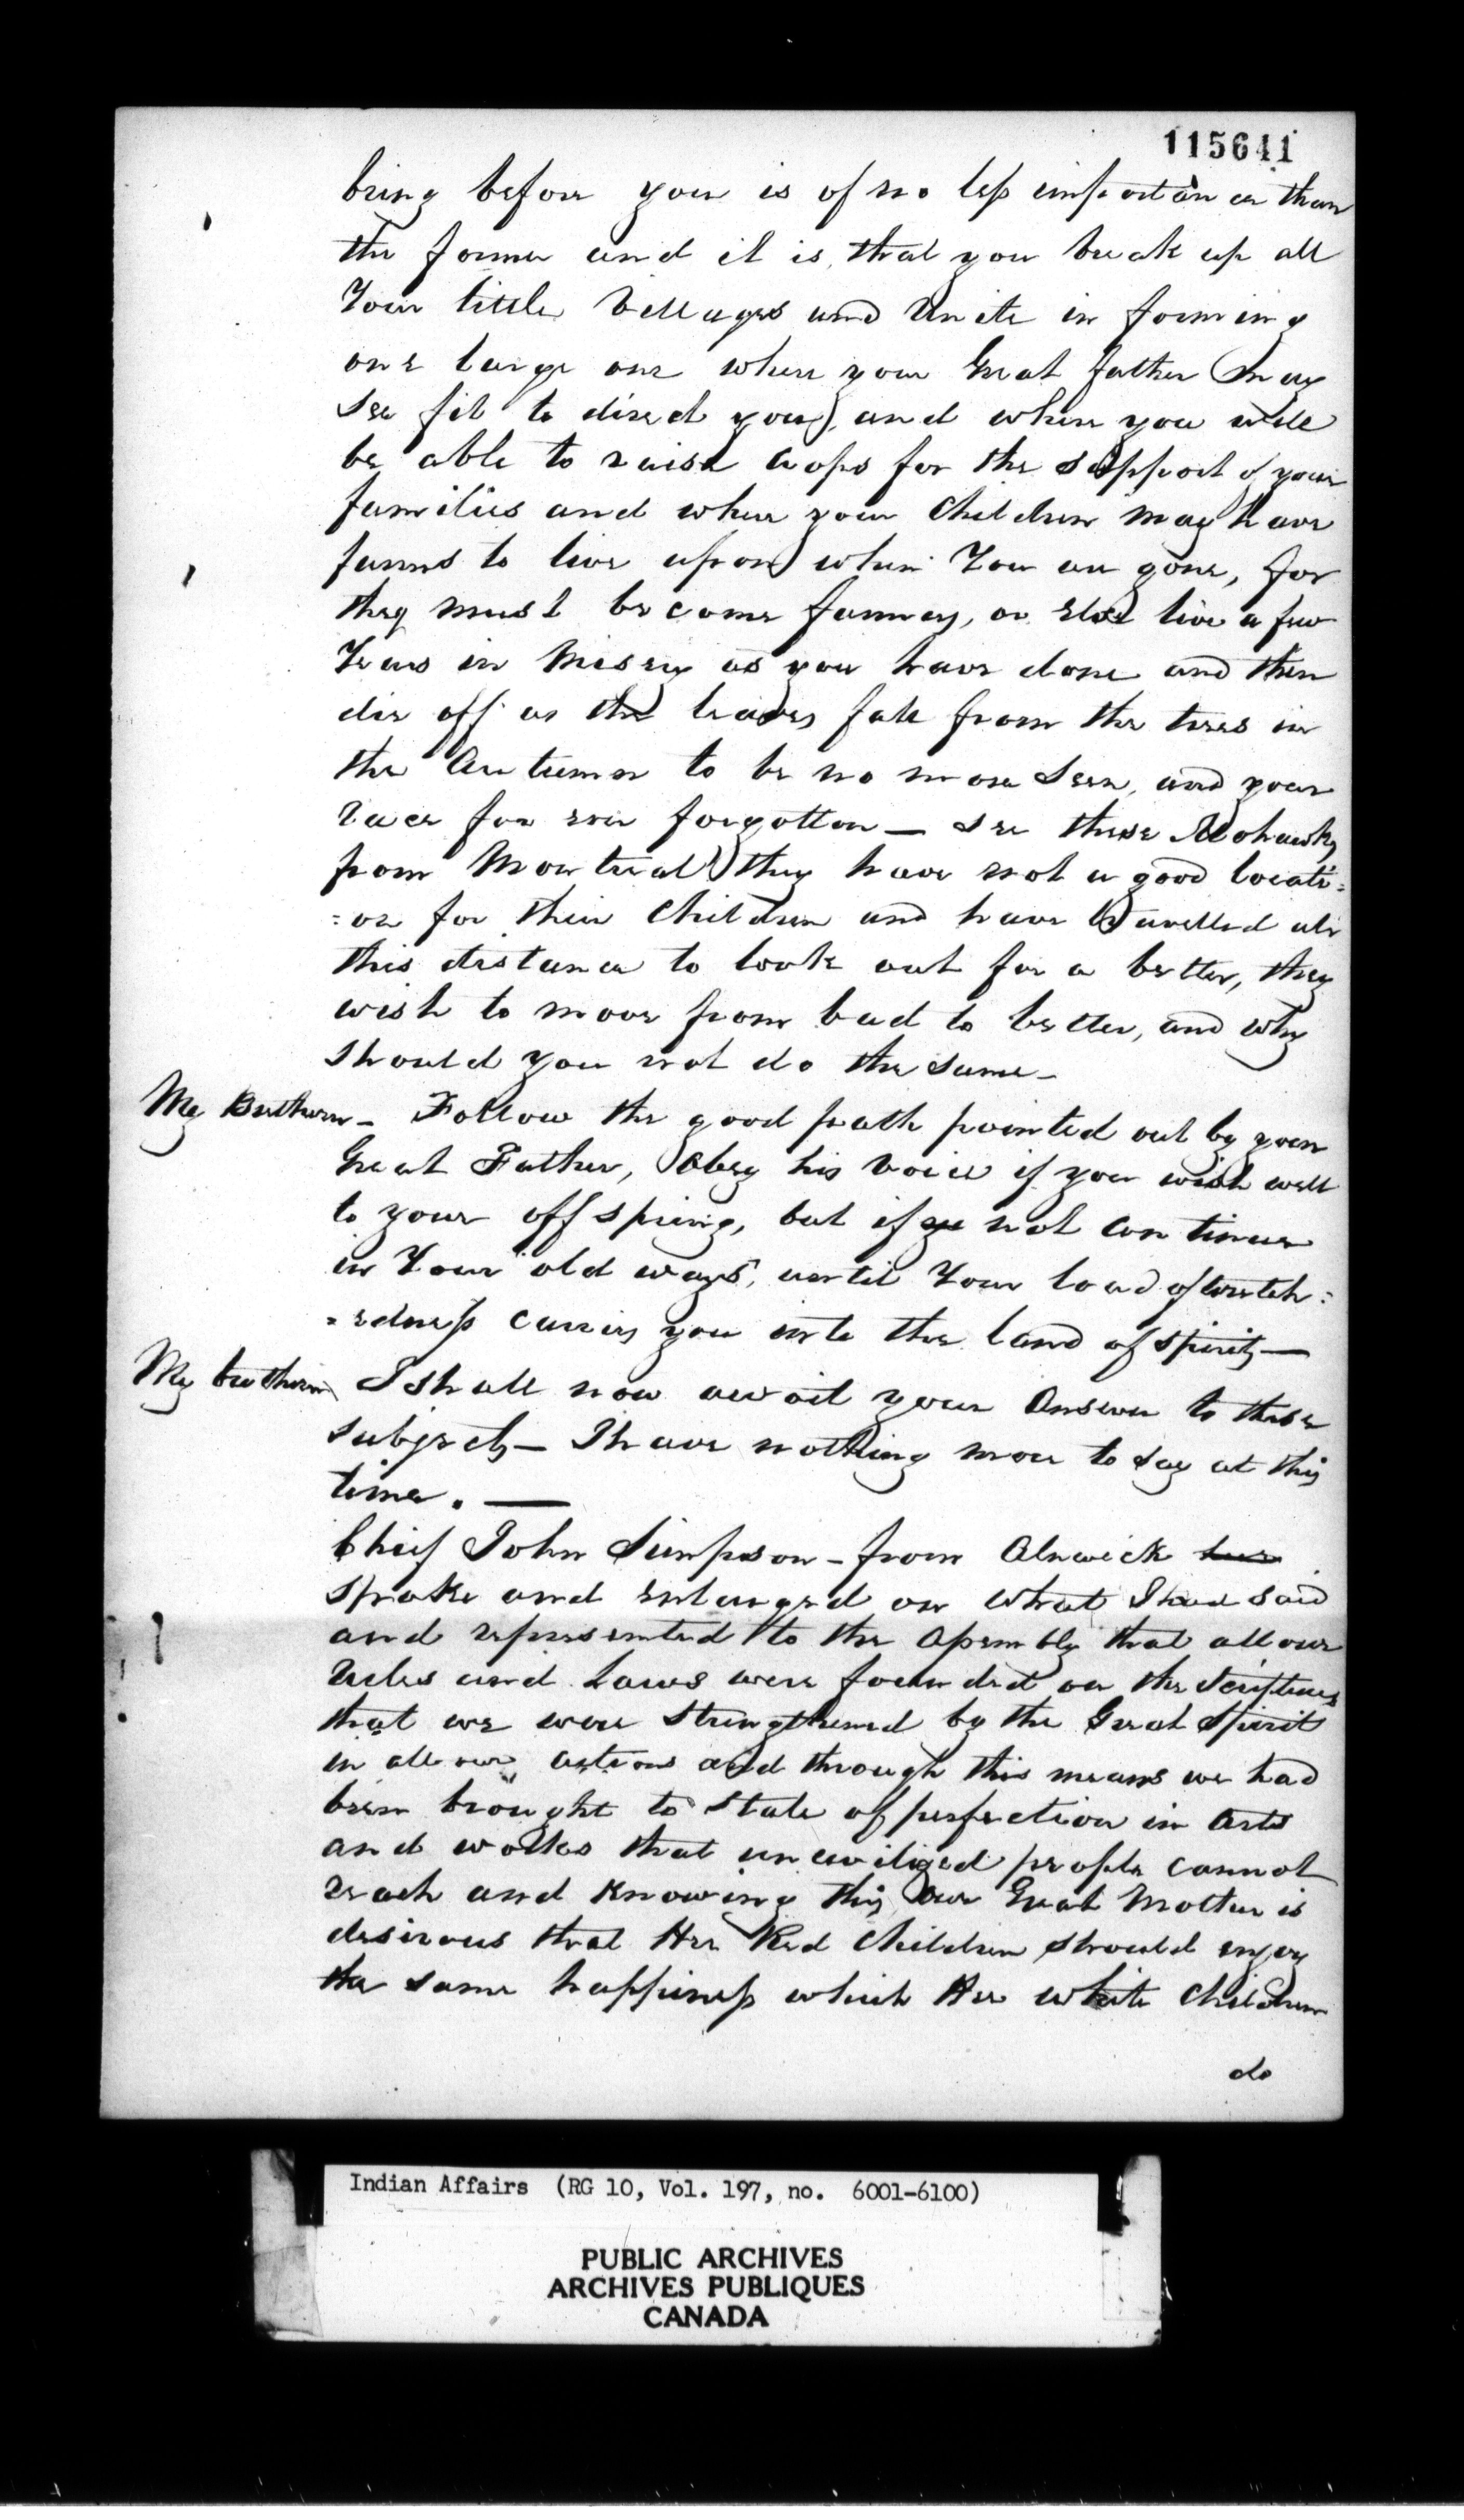 115641
bring before you is of no less importance than
the former and it is, that you break up all
Your little Villages and Unite in forming
one large one where your Great father may
see fit to direct you, and where you will
be able to raise Crops for the Support of your
families and where your Children may have
farms to live upon when You are gone, for
they must become farmers, or else live a few
Years in Misery as you have done and then
die off as the leaves fall from the trees in
the Autumn to be no more Seen, and your
race for ever forgotten — See these Mohawks
from Montreal they have not a good locati=
=on for their Children and have travelled all
this distance to look out for a better, they
wish to move from bad to better, and why
should you not do the same –
My Brethren – Follow the good path pointed out by your
Great Father, Obey his Voice if you wish well
to your offspring, but if not continue
in Your old ways, until Your load of wretch=
=edness carries you into the land of spirits —
My brethren I shall now await your Answer to these
subjects – I have nothing more to say at this
time. —
Chief John Simpson – from Alnwick
spoke and enlarged on what I had said
and represented to the Assembly that all our
Rules and Laws were founded on the Scriptures
that we were strengthened by the Great Spirit
in all our actions and through this means we had
been brought to State of perfection in Arts
and works that uncivilized people cannot
reach and knowing this Our Great Mother is
desirous that Her Red Children should enjoy
the same happiness which Her White Children
do
Indian Affairs (RG 10, Vol. 197, no. 6001-6100)
PUBLIC ARCHIVES
ARCHIVES PUBLIQUES
CANADA